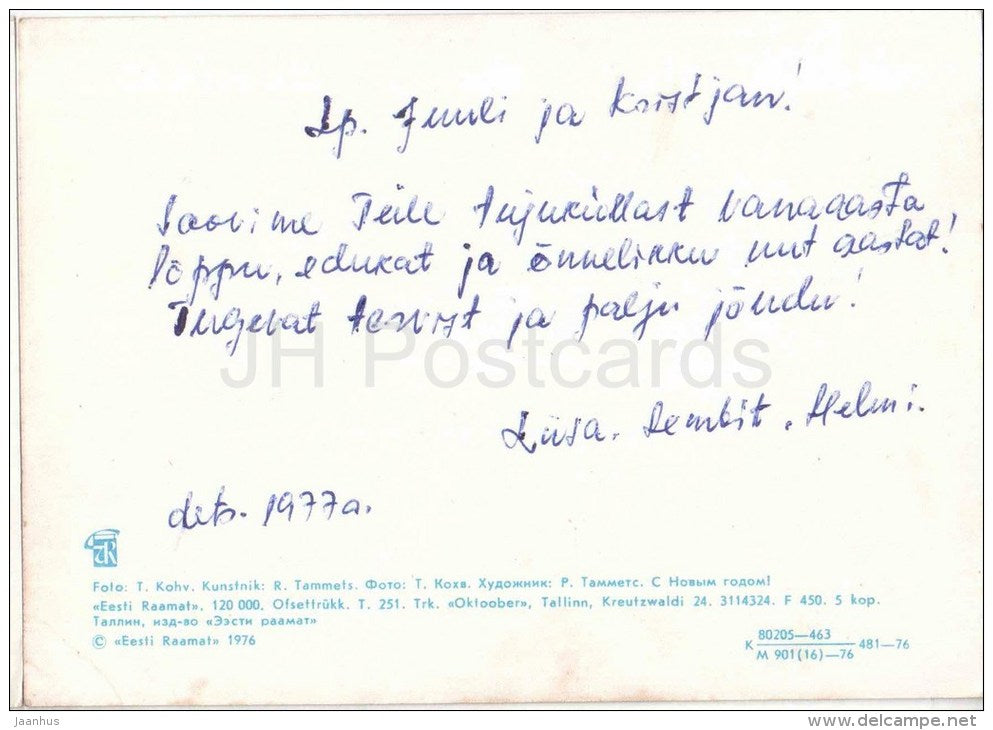 Lp. Juuli ja Kristjan!
Soovime Teile tujuküllast vanaaasta
lõppu, edukat ja õnnelikku uut aastat!
Tugevat tervist ja palju jõudu!
JH Postcards
Liisa. Lembit. Helmi.
dets. 1977a.
ER
Foto: T. Kohv. Kunstnik: R. Tammets. Фото: Т. Кохв. Художник: Р. Тамметс. С Новым годом!
«Eesti Raamat». 120 000. Ofsettrükk. T. 251. Trk. «Oktoober», Tallinn, Kreutzwaldi 24. 3114324. F 450. 5 kop.
Таллин, изд-во «Ээсти раамат»
© «Eesti Raamat» 1976
К 80205—463 481—76
М 901(16)—76
Jaanhus
www.delcampe.net